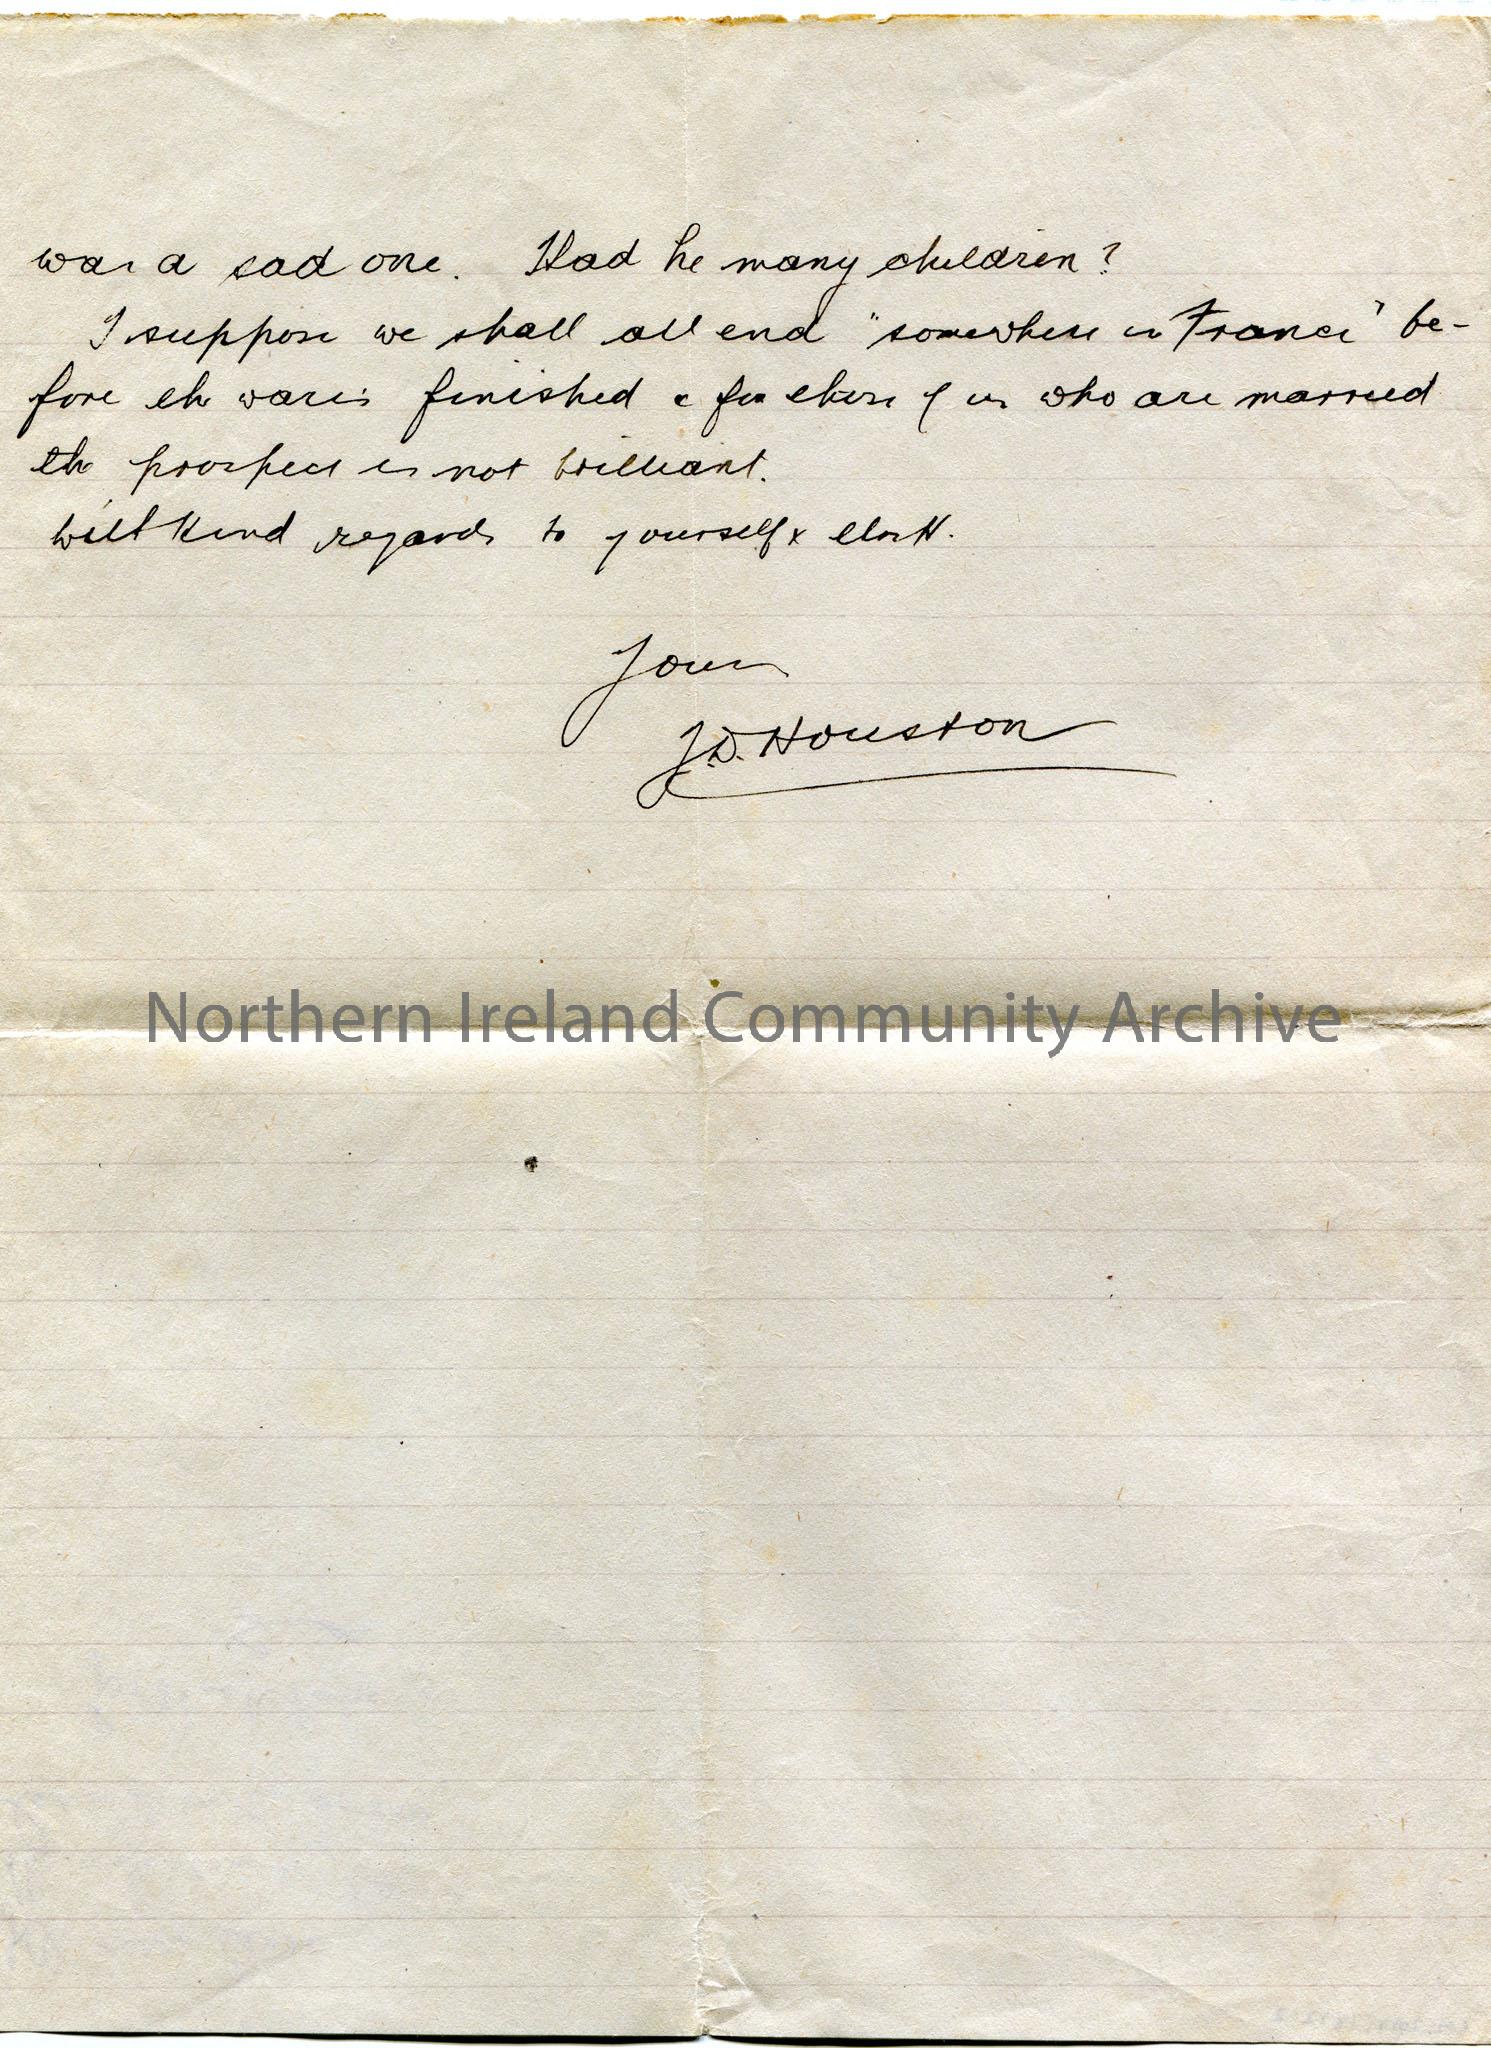 was a sad one. Had he many children?
I suppose we shall all end "somewhere in France" be-
fore the war is finished & for those of us who are married
the prospect is not brilliant.
With kind regards to yourself &
Yours
J.D. Houston
Northern Ireland Community Archive